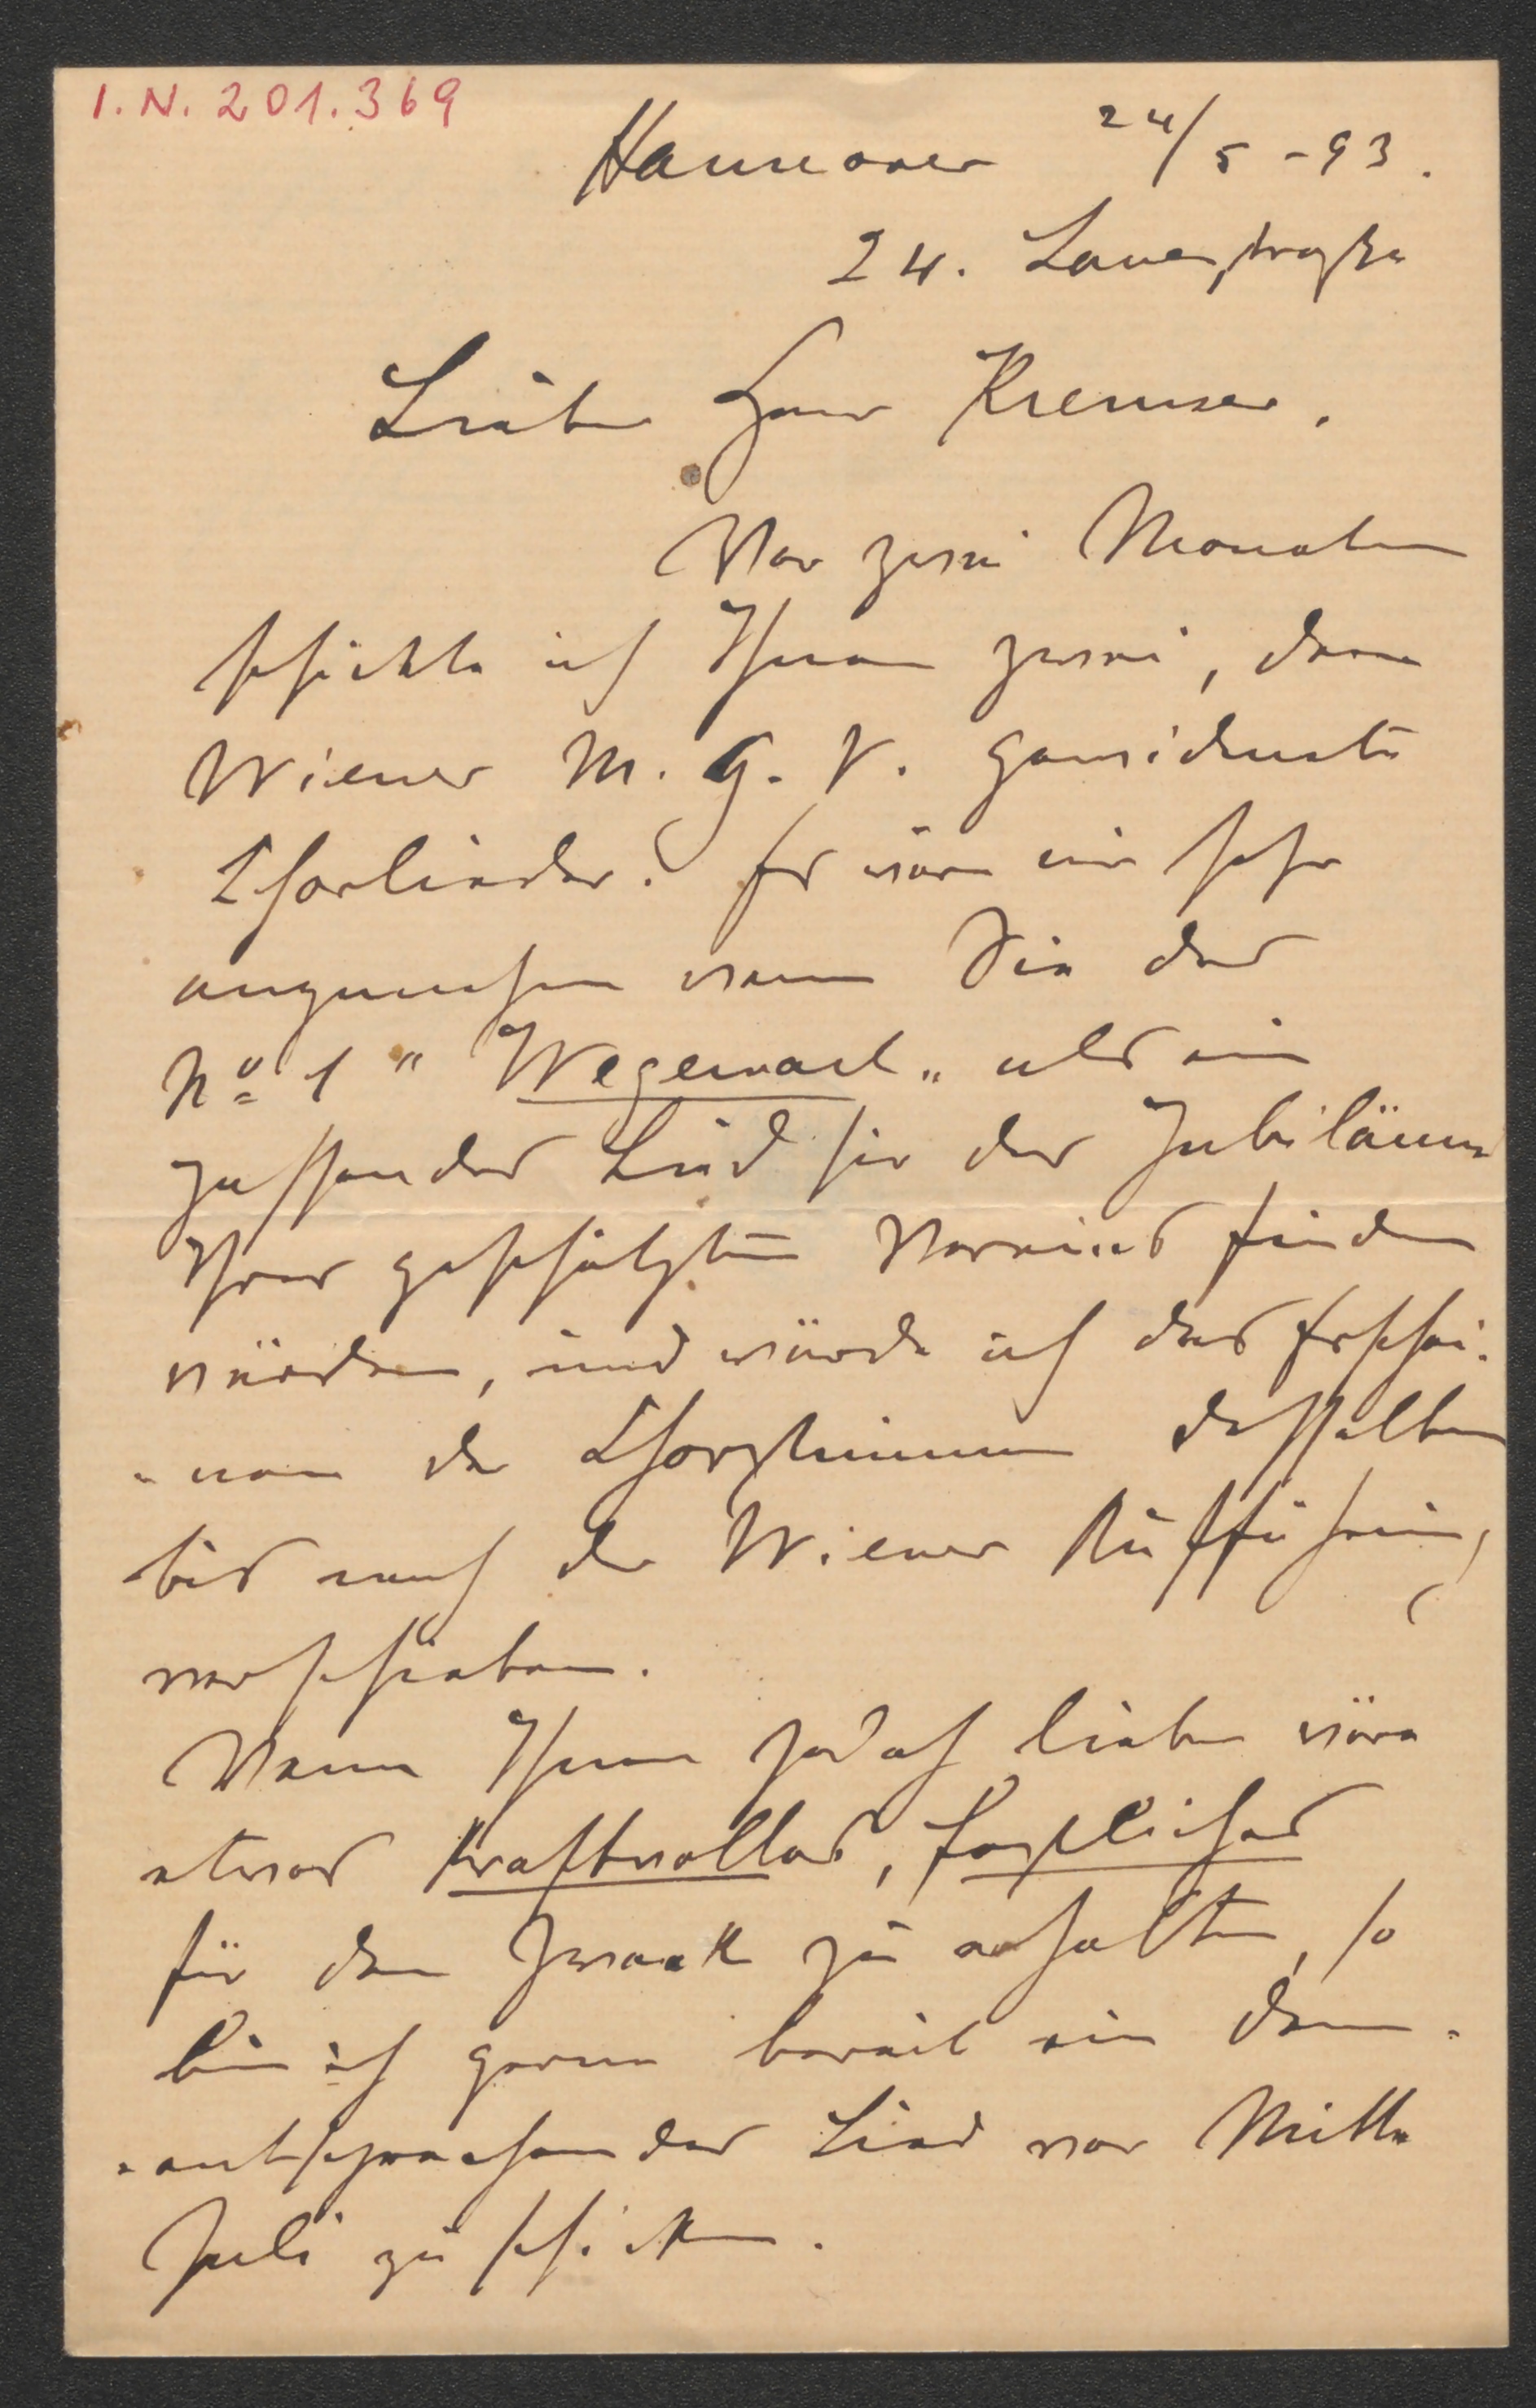 I.N. 201.369
Hannover 24/5 - 93.
24. Lavesstraße
Lieber Herr Kremser.
Vor zwei Monaten
schickte ich Ihnen zwei, dem
Wiener M. G. V. gewidmete
Chorlieder. Es wäre mir sehr
angenehm wenn Sie das
No 1 " Wegewart " als ein
passendes Lied für das Jubiläum
Ihres geschätzten Vereines finden
würden, und würde ich das Erschei-
-nen der Chorstimmen desselben
bis nach der Wiener Aufführung
verschieben.
Wenn Ihnen jedoch lieber wäre
etwas Kraftvolles, Festliches
für den Zweck zu erhalten, so
bin ich gerne bereit ein dem-
-entsprechendes Lied vor Mitte
Juli zu schicken.